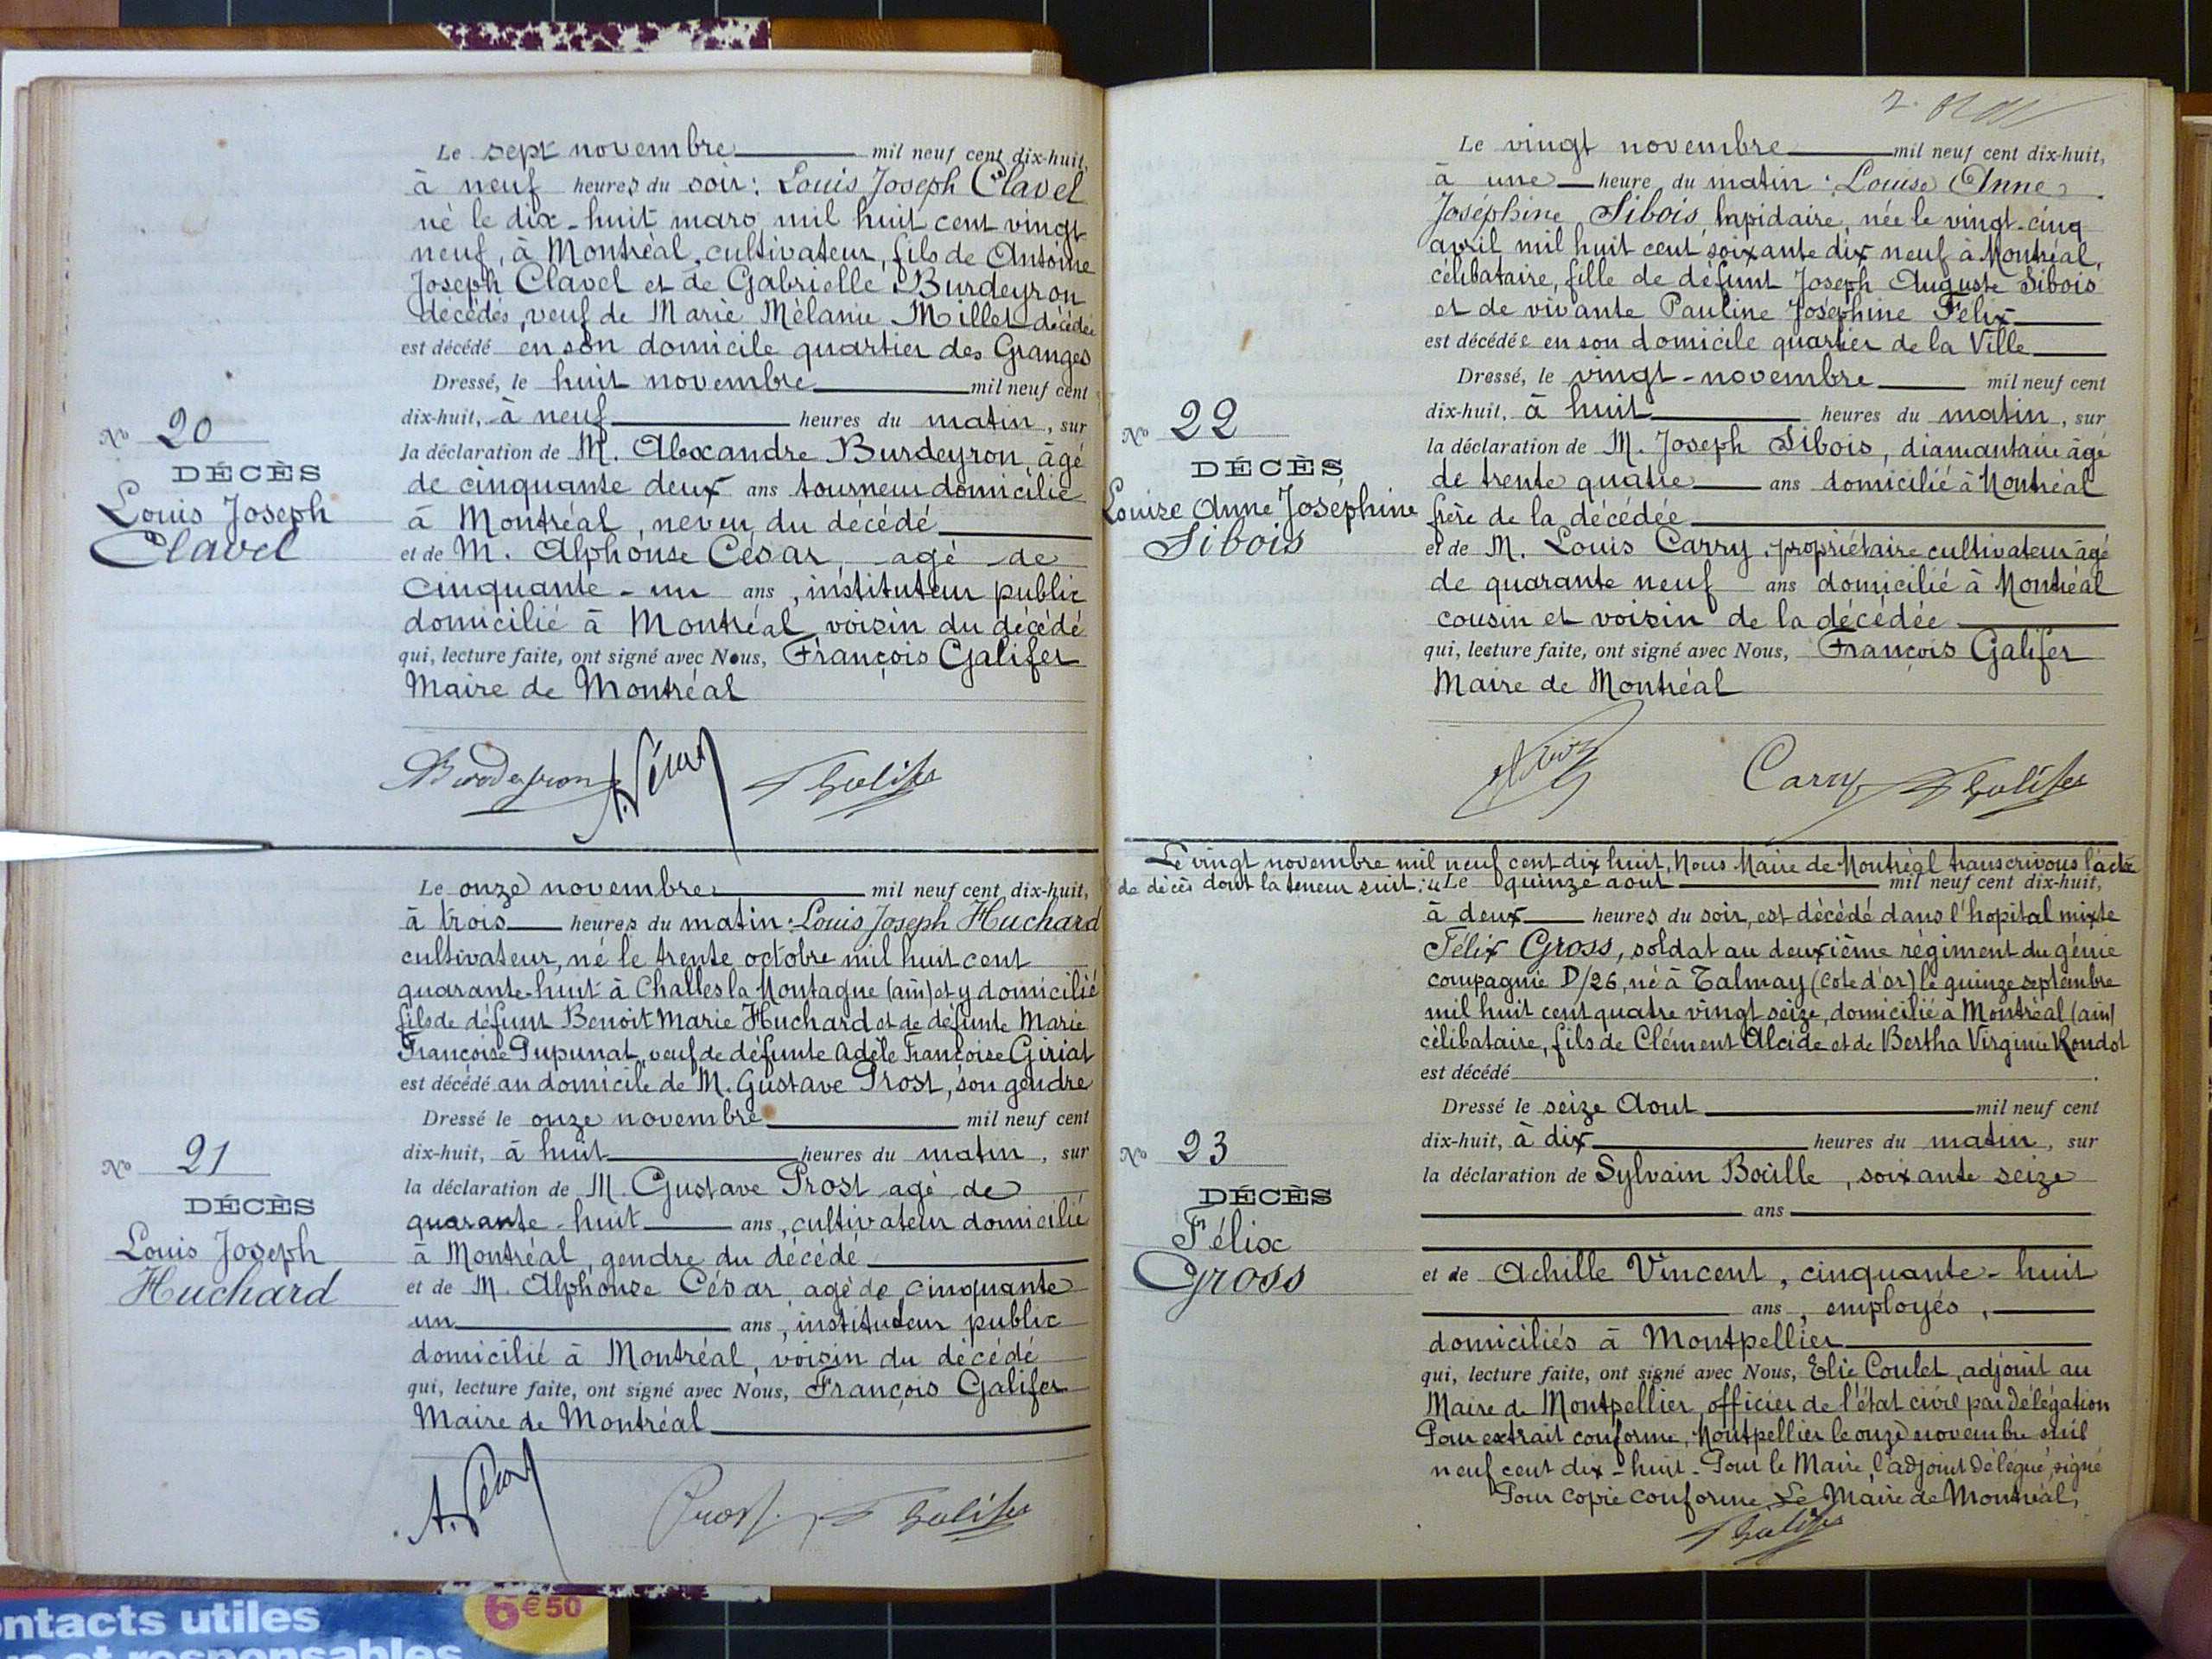 Le sept novembre mil neuf cent dix-huit,
à neuf heures du soir : Louis Joseph Clavel
né le dix-huit mars mil huit cent vingt
neuf, à Montréal, cultivateur, fils de Antoine
Joseph Clavel et de Gabrielle Burdeyron
décédés, veuf de Marie Mélanie Millet décédée
est décédé en son domicile quartier des Granges
Dressé, le huit novembre mil neuf cent
dix-huit, à neuf heures du matin, sur
la déclaration de M. Alexandre Burdeyron, âgé
de cinquante deux ans tourneur domicilié
à Montréal, neveu du décédé
et de M. Alphonse César, agé de
cinquante-un ans, instituteur public
domicilié à Montréal, voisin du décédé
qui, lecture faite, ont signé avec Nous, François Galifer
Maire de Montréal
No 20
DÉCÈS
Louis Joseph
Clavel
Burdeyron A. César Galifer
Le onze novembre mil neuf cent dix-huit,
à trois heures du matin : Louis Joseph Huchard
cultivateur, né le trente octobre mil huit cent
quarante-huit à Challes la Montagne (ain) et y domicilié
fils de défunt Benoit Marie Huchard et de défunte Marie
Françoise Pupunat, veuf de défunte Adèle Françoise Giriat
est décédé au domicile de M. Gustave Prost, son gendre
Dressé le onze novembre mil neuf cent
dix-huit, à huit heures du matin, sur
la déclaration de M. Gustave Prost agé de
quarante-huit ans, cultivateur domicilié
à Montréal, gendre du décédé
et de M. Alphonse César, agé de cinquante
un ans, instituteur public
domicilié à Montréal, voisin du décédé
qui, lecture faite, ont signé avec Nous, François Galifer
Maire de Montréal
No 21
DÉCÈS
Louis Joseph
Huchard
A. César Prost Galifer
Le vingt novembre mil neuf cent dix-huit,
à une heure du matin : Louise Anne
Joséphine Sibois, lapidaire, née le vingt-cinq
avril mil huit cent soixante dix neuf à Montréal,
célibataire, fille de défunt Joseph Auguste Sibois
et de vivante Pauline Joséphine Félix
est décédée en son domicile quartier de la Ville
Dressé, le vingt-novembre mil neuf cent
dix-huit, à huit heures du matin, sur
la déclaration de M. Joseph Sibois, diamantaire âgé
de trente quatre ans domicilié à Montréal
frère de la décédée
et de M. Louis Carry, propriétaire cultivateur âgé
de quarante neuf ans domicilié à Montréal
cousin et voisin de la décédée
qui, lecture faite, ont signé avec Nous, François Galifer
Maire de Montréal
No 22
DÉCÈS
Louise Anne Joséphine
Sibois
Carry Galifer
Le vingt novembre mil neuf cent dix huit, Nous Maire de Montréal transcrivons l'acte
de décès dont la teneur suit : "Le quinze aout mil neuf cent dix-huit,
à deux heures du soir, est décédé dans l'hopital mixte
Félix Gross, soldat au deuxième régiment du génie
compagnie D/26, né à Talmay (Cote d'or) le quinze septembre
mil huit cent quatre vingt seize, domicilié à Montréal (ain)
célibataire, fils de Clément Alcide et de Bertha Virginie Rondot
est décédé
Dressé le seize Aout mil neuf cent
dix-huit, à dix heures du matin, sur
la déclaration de Sylvain Boulle, soixante seize
ans
et de Achille Vincent, cinquante-huit
ans, employés,
domiciliés à Montpellier
qui, lecture faite, ont signé avec Nous, Elie Coulet, adjoint au
Maire de Montpellier, officier de l'état civil par délégation
Pour extrait conforme, Montpellier le onze novembre mil
neuf cent dix-huit. Pour le Maire, l'adjoint délégué, signé
Pour copie conforme, Le Maire de Montréal,
Galifer
No 23
DÉCÈS
Félix
Gross
ontacts utiles
6€50
et responsables